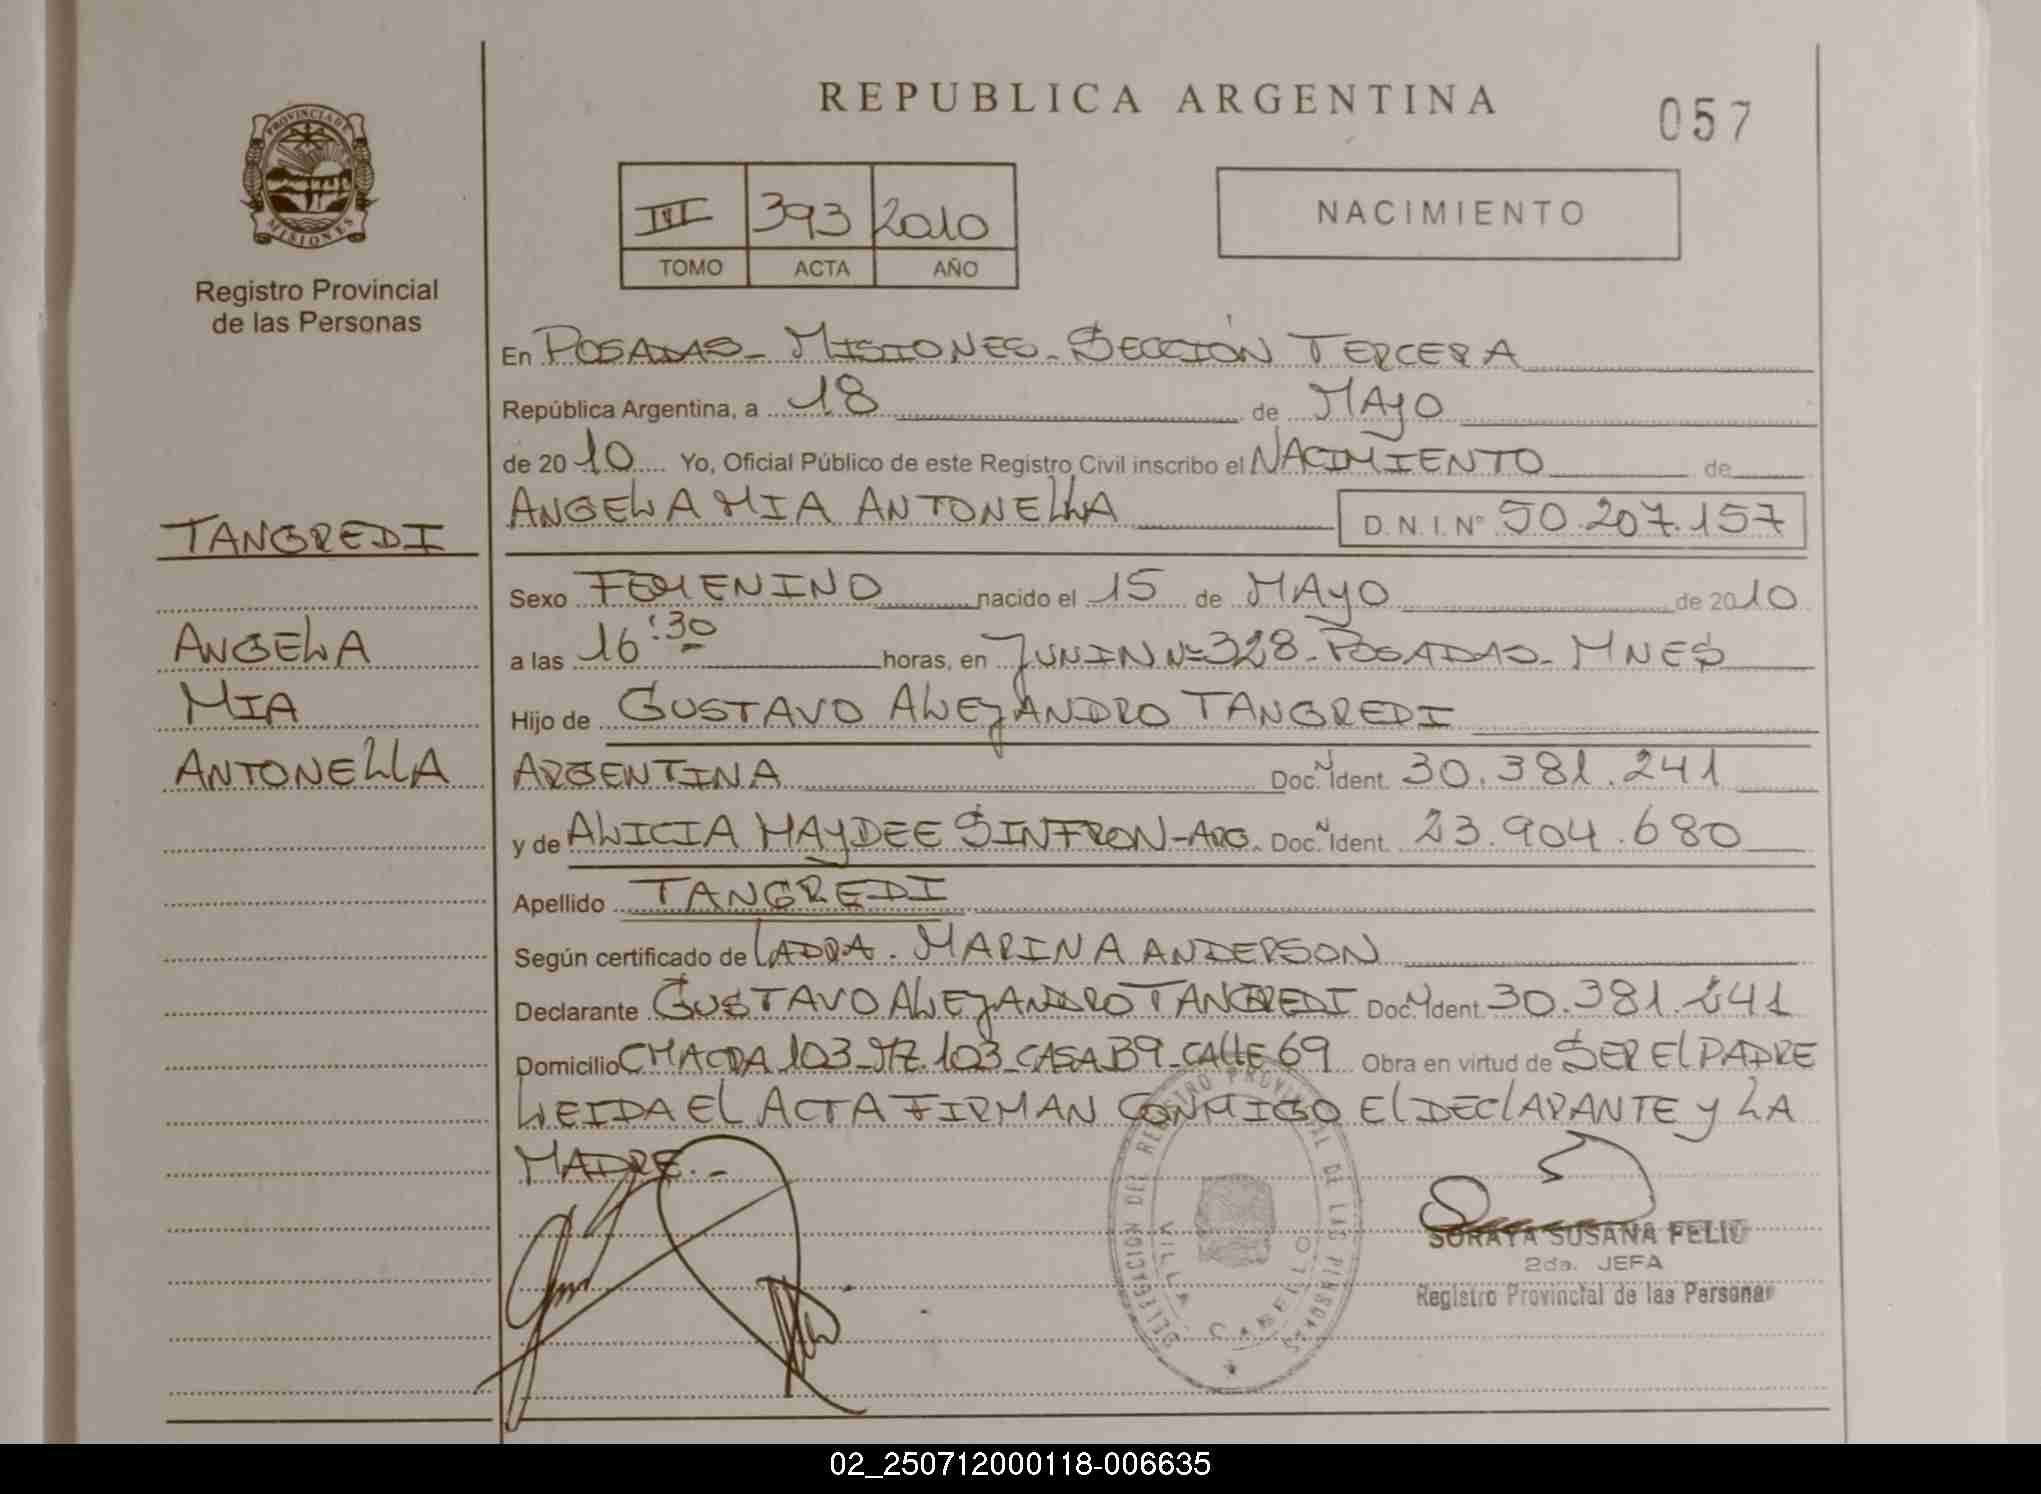 REPUBLICA ARGENTINA
057
PROVINCIA DE
MISIONES
Registro Provincial
de las Personas
III 393 2010
TOMO ACTA AÑO
NACIMIENTO
En POSADAS - MISIONES - SECCIÓN TERCERA
República Argentina, a 18 de MAYO
de 2010 Yo, Oficial Público de este Registro Civil inscribo el NACIMIENTO de
ANGELA MIA ANTONELLA D. N. I. Nº 50.207.157
TANGREDI
Sexo FEMENINO nacido el 15 de MAYO de 2010
ANGELA
a las 16:30 horas, en JUNIN Nº 328 - POSADAS - MNES
MIA
Hijo de GUSTAVO ALEJANDRO TANGREDI
ANTONELLA
ARGENTINA Doc. N Ident. 30.381.241
y de ALICIA HAYDEE SINFRON - ARG. Doc. N Ident. 23.904.680
Apellido TANGREDI
Según certificado de LA DRA. MARINA ANDERSON
Declarante GUSTAVO ALEJANDRO TANGREDI Doc. N Ident. 30.381.241
Domicilio CHACRA 103 - MZ. 103 - CASA B9 - CALLE 69 Obra en virtud de SER EL PADRE
LEIDA EL ACTA FIRMAN CONMIGO EL DECLARANTE Y LA
MADRE.-
DELEGACION DEL REGISTRO PROVINCIAL DE LAS PERSONAS
VILLA CABELLO
SORAYA SUSANA FELIU
2da. JEFA
Registro Provincial de las Personas
02_250712000118-006635